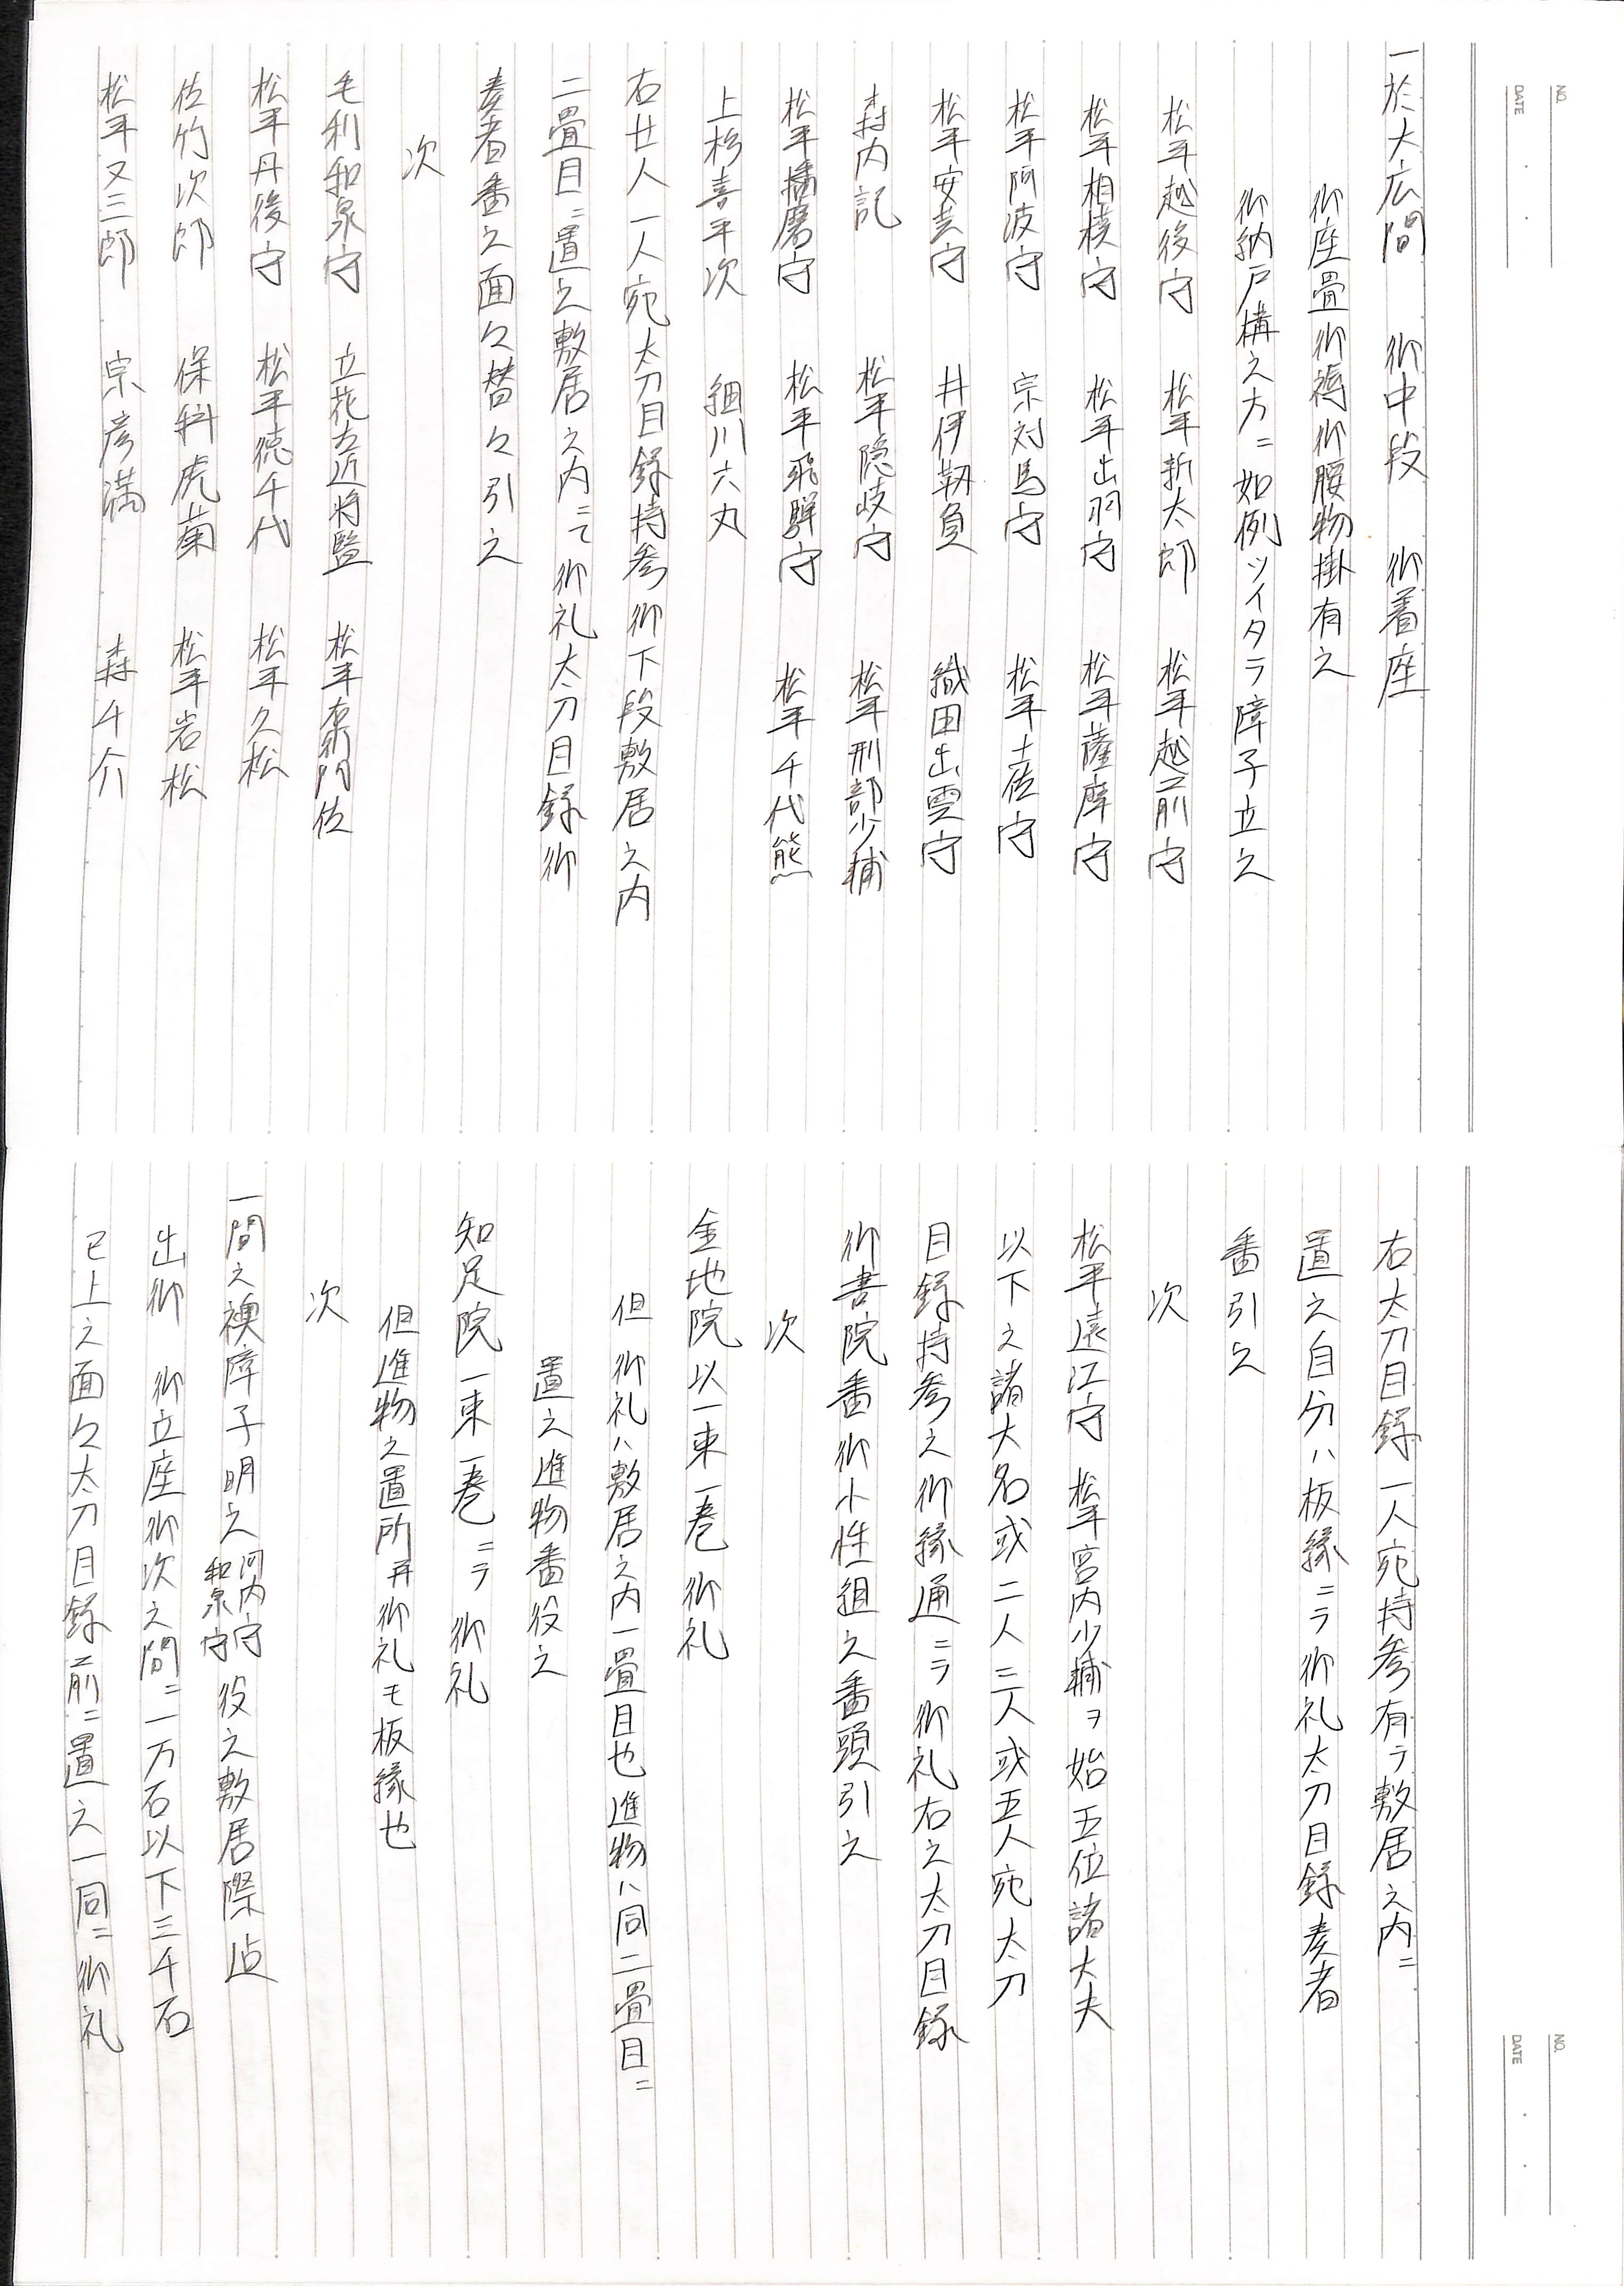 NO.
DATE
一於大広間　御中段　御着座
御座畳御褥御腰物掛有之
御納戸構之方ニ如例ツイタラ障子立之
松平越後守　松平新太郎　松平越前守
松平相模守　松平出羽守　松平薩摩守
松平阿波守　宗対馬守　松平土佐守
松平安芸守　井伊靭負　織田出雲守
森内記　松平隠岐守　松平刑部少輔
松平播磨守　松平飛騨守　松平千代熊
上杉喜平次　細川六丸
右廿人一人宛太刀目録持参御下段敷居之内
二畳目ニ置之敷居之内ニて御礼太刀目録御
奏者番之面々替々引之
次
毛利和泉守　立花左近将監　松平右衛門佐
松平丹後守　松平徳千代　松平久松
佐竹次郎　保科虎菊　松平岩松
松平又三郎　宗彦満　森千介
NO.
DATE
右太刀目録一人宛持参有テ敷居之内ニ
置之自分ハ板縁ニテ御礼太刀目録奏者
番引之
次
松平遠江守　松平宮内少輔ヲ始五位諸大夫
以下之諸大名或二人三人或五人宛太刀
目録持参之御縁通ニテ御礼右之太刀目録
御書院番御小性組之番頭引之
次
金地院以一束一巻御礼
但御礼ハ敷居之内一畳目也進物ハ同二畳目ニ
置之進物番役之
知足院一束一巻ニテ御礼
但進物之置所并御礼モ板縁也
次
一間之襖障子明之河内守和泉守役之敷居際迠
出御　御立座御次之間ニ一万石以下三千石
已上之面々太刀目録前ニ置之一同ニ御礼